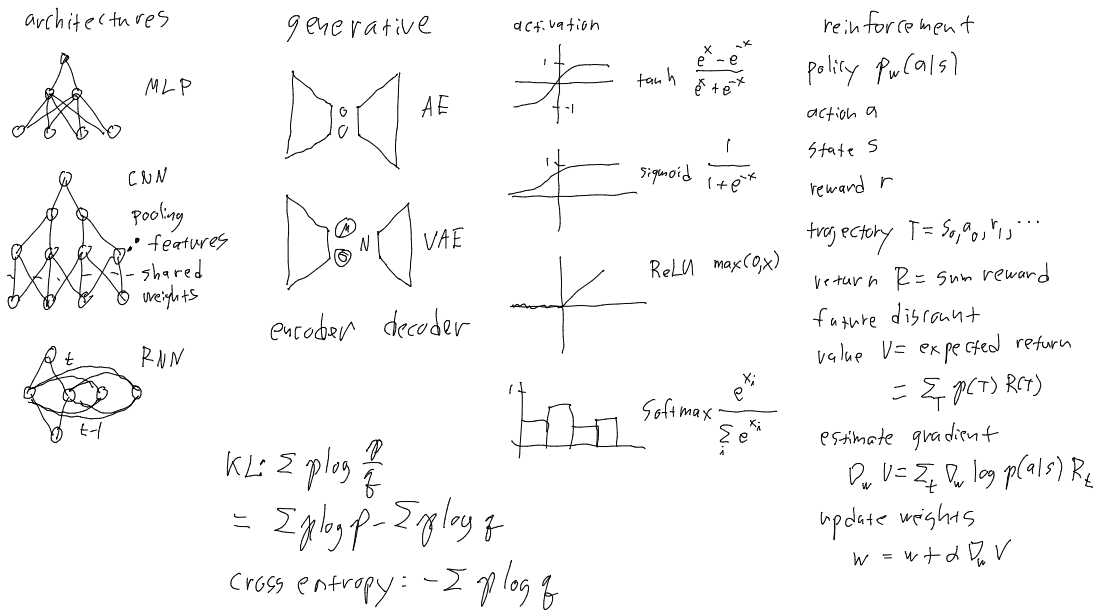 architectures
MLP
CNN
pooling
features
- shared
weights
RNN
t
t-1
generative
AE
μ
σ
N
VAE
encoder decoder
KL: Σ p log p/q
= Σ p log p - Σ p log q
cross entropy: - Σ p log q
activation
1
-1
tanh (e^x - e^-x)/(e^x + e^-x)
1
sigmoid 1/(1 + e^-x)
ReLU max(0,x)
1
softmax e^x_i / Σ_i e^x_i
reinforcement
policy p_w(a|s)
action a
state s
reward r
trajectory T = s_0, a_0, r_1, ...
return R = sum reward
future discount
value V = expected return
= Σ_T p(T) R(T)
estimate gradient
∇_w V = Σ_t ∇_w log p(a|s) R_t
update weights
w = w + α ∇_w V